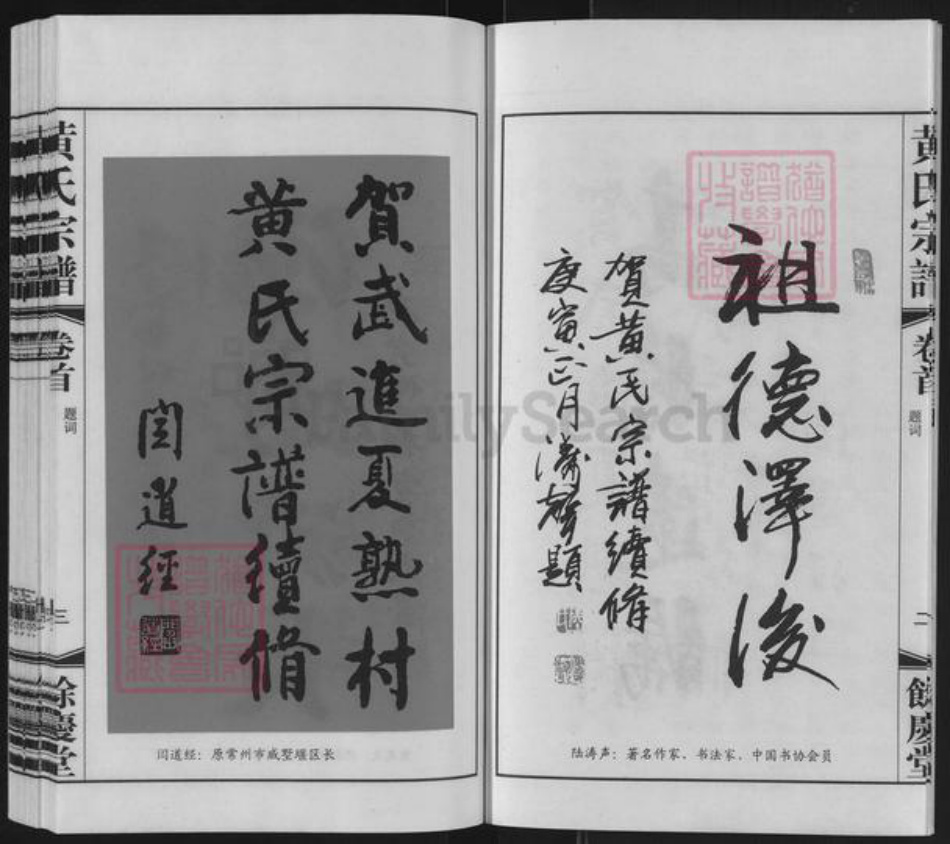 黄氏宗譜
卷首
题词
二
餘慶堂
祖德澤後
賀黄氏宗譜續脩
庚寅正月濤聲題
陆涛声：著名作家、书法家、中国书协会员
賀武進夏熟村
黄氏宗譜續脩
閆道經
闫道经：原常州市戚墅堰区长
黄氏宗譜
卷首
题词
三
餘慶堂
FamilySearch